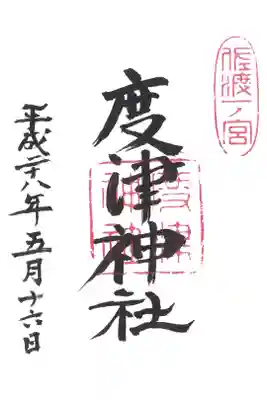 佐渡一ノ宮
度津神社
度津神社
平成二十八年五月十六日